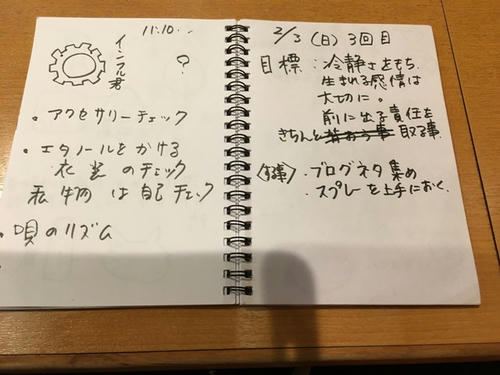 11:10..
インフル君
?
・アクセサリーチェック
・エタノールをかける
衣裳のチェック
私物は自己チェック
・唄のリズム
2/3(日)3回目
目標:冷静さをもち、
生まれる感情は
大切に。
前に出る責任を
きちんと 取る事
・ブログネタ集め
・スプレーを上手におく。